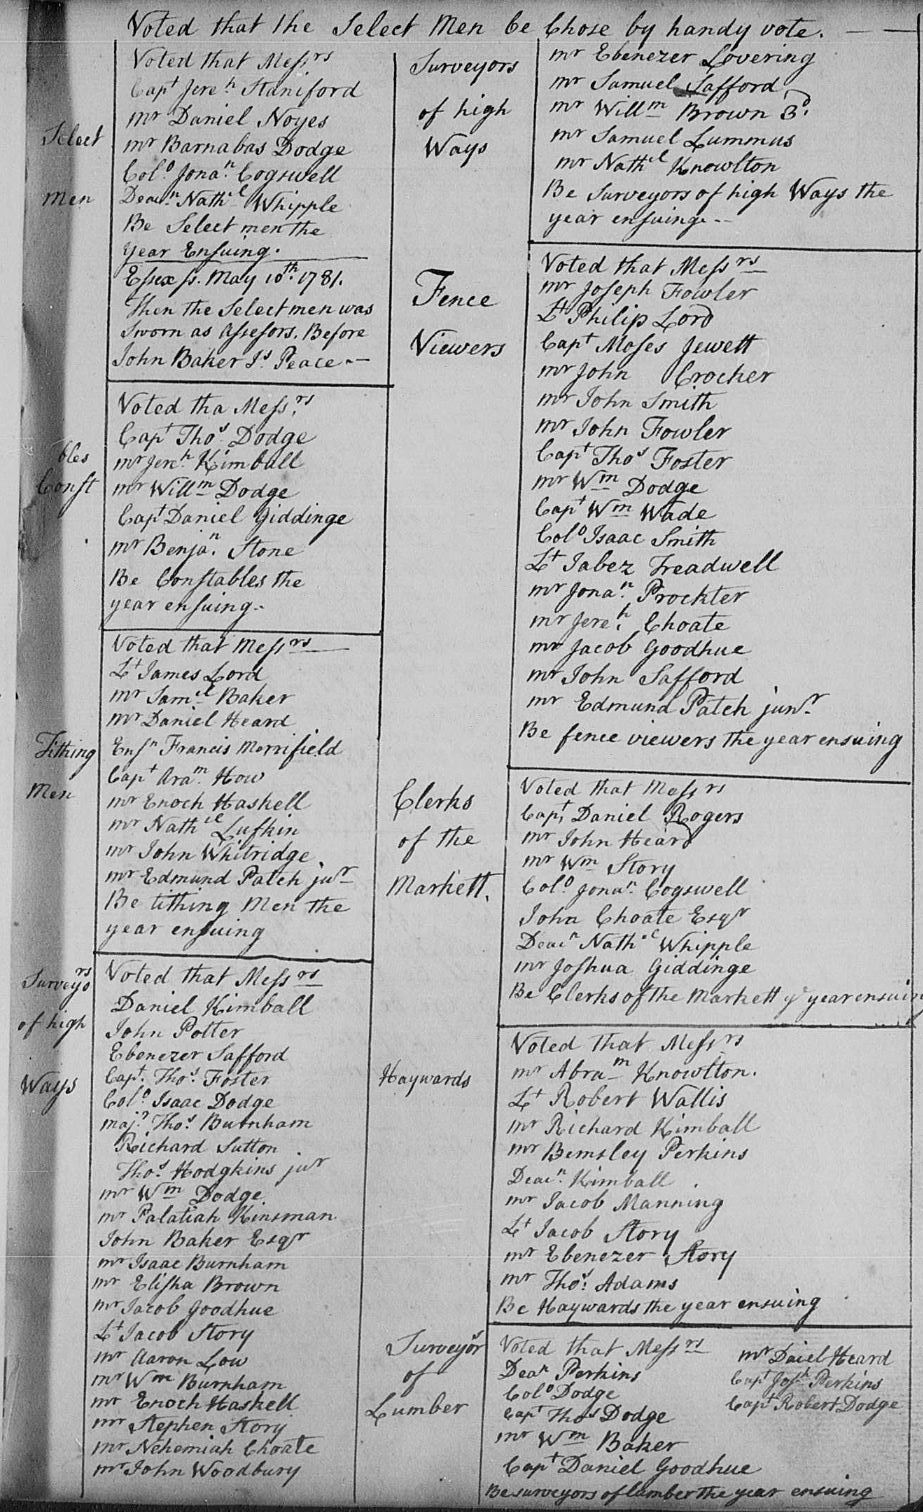 Voted that the Select Men be Chose by handy vote.
Select
Men
Voted that Messrs
Capt Jereh Staniford
mr Daniel Noyes
mr Barnabas Dodge
Colo Jonan Cogswell
Deacn Nathel Whipple
Be Select men the
year Ensuing.
Essex ss. May 10th 1781.
Then the Select men was
Sworn as assesors. Before
John Baker Js Peace
bles
Const
Voted tha Messrs
Capt Thos Dodge
mr Jerh Kimball
mr Willm Dodge
Capt Daniel Giddinge
mr Benjan Stone
Be Constables the
year ensuing
Tithing
Men
Voted that Messrs
Lt James Lord
mr Samel Baker
mr Daniel Heard
Ensn Francis Merrifield
Capt Aram How
mr Enoch Haskell
mr Nathel Lufkin
mr John Whitridge
mr Edmund Patch jur
Be tithing Men the
year ensuing
Surveyors
of high
Ways
Voted that Messrs
Daniel Kimball
John Potter
Ebenezer Safford
Capt. Thos Foster
Colo Isaac Dodge
majr Thos Burnham
Richard Sutton
Thos Hodgkins jur
mr Wm Dodge
mr Palatiah Kinsman
John Baker Esqr
mr Isaac Burnham
mr Elisha Brown
mr Jacob Goodhue
Lt Jacob Story
mr Aaron Low
mr Wm Burnham
mr Enoch Haskell
mr Stephen Story
mr Nehemiah Choate
mr John Woodbury
Surveyors
of high
Ways
mr Ebenezer Lovering
mr Samuel Safford
mr Willm Brown 3d.
mr Samuel Lummus
mr Nathel Knowlton
Be Surveyors of high Ways the
year ensuing
Fence
Viewers
Voted that Messrs
mr Joseph Fowler
Lt Philip Lord
Capt Moses Jewett
mr John Crocker
mr John Smith
mr John Fowler
Capt Thos Foster
mr Wm Dodge
Capt Wm Wade
Colo Isaac Smith
Lt Jabez Treadwell
mr Jonan Prockter
mr Jereh Choate
mr Jacob Goodhue
mr John Safford
mr Edmund Patch junr
Be fence viewers the year ensuing
Clerks
of the
Markett.
Voted that Messrs
Capt Daniel Rogers
mr John Heard
mr Wm Story
Colo Jonan Cogswell
John Choate Esqr
Deacn Nathel Whipple
mr Joshua Giddinge
Be Clerks of the Markett ye year ensuing
Haywards
Voted that Messrs
mr Abram Knowlton.
Lt Robert Wallis
mr Richard Kimball
mr Bemsley Perkins
Deacn Kimball
mr Jacob Manning
Lt Jacob Story
mr Ebenezer Story
mr Thos Adams
Be Haywards the year ensuing
Surveyor
of
Lumber
Voted that Messrs
Dean Perkins
Colo Dodge
Capt Thos Dodge
mr Wm Baker
Capt Daniel Goodhue
mr Daiel Heard
Capt Josh Perkins
Capt Robert Dodge
Be surveyors of lumber the year ensuing